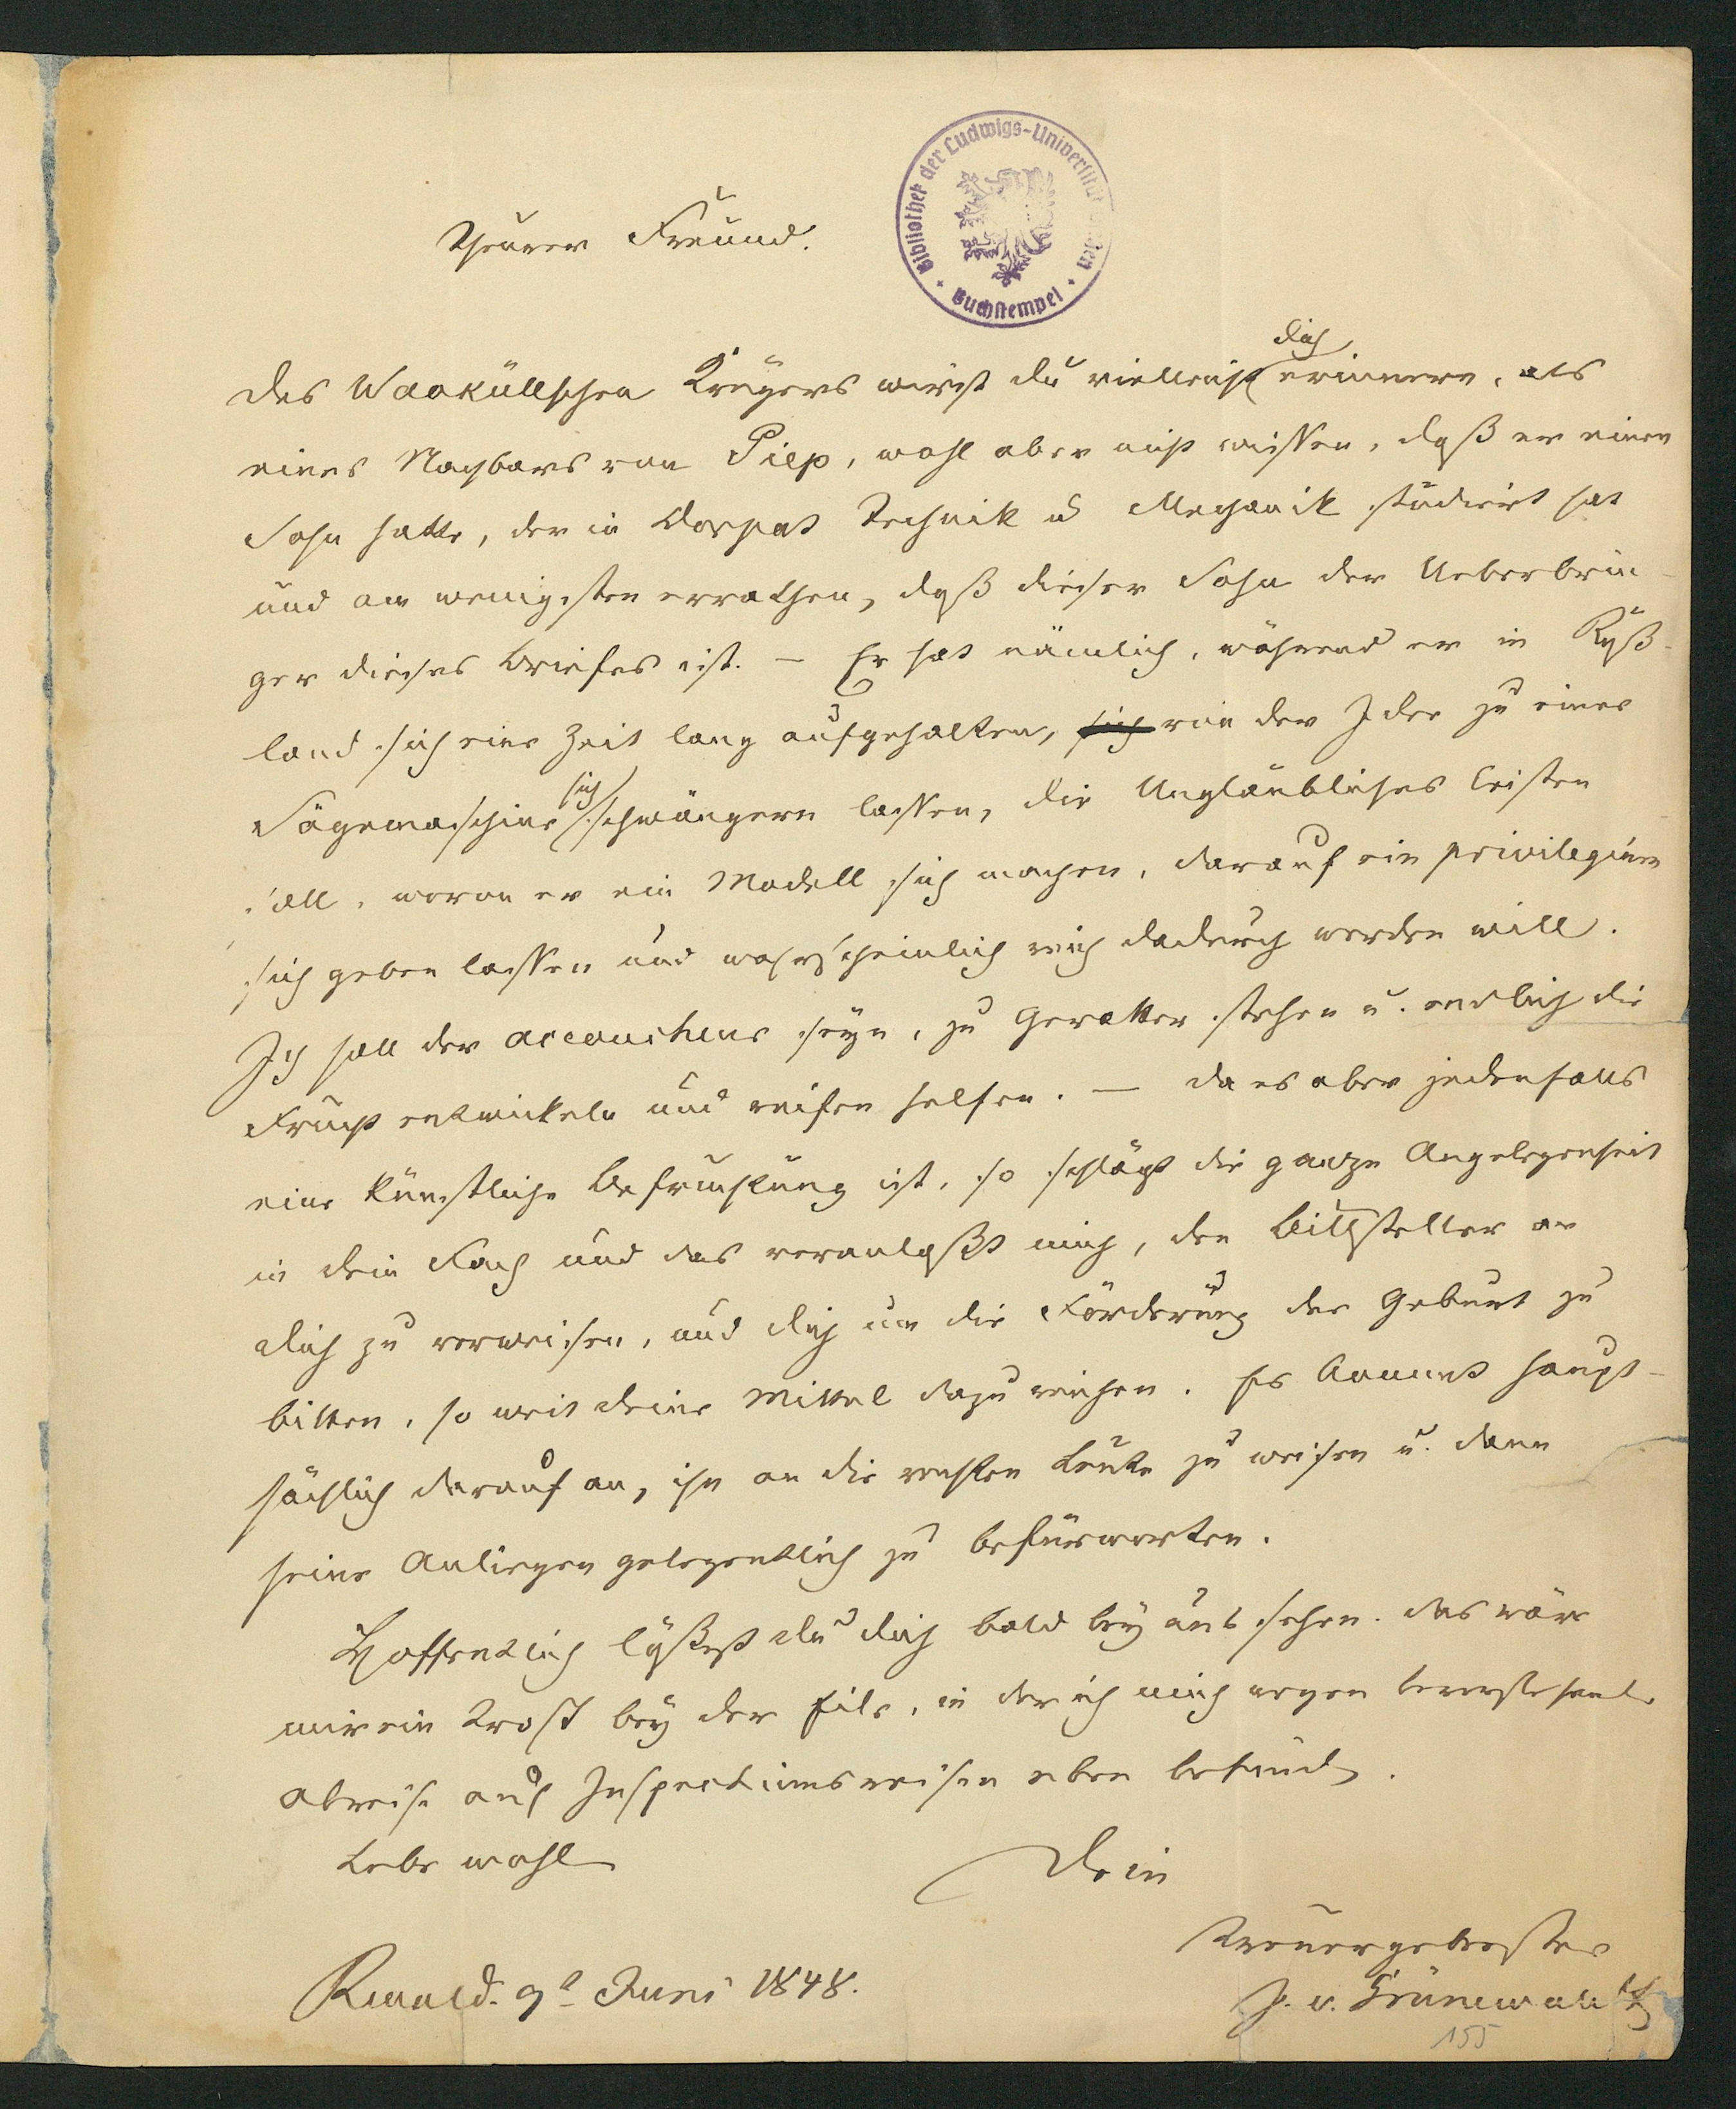 Bibliothek der Ludwigs-Universität Gießen
Buchstempel
Theurer Freund.
dich
Des Waoküllschen Krügers wirst du vielleicht erinnern, als
eines Nachbars von Piep, wohl aber nicht wissen, daß er einen
Sohn hatte, der in Dorpat Technik u Mechanik studiert hat
und am wenigsten errathen, daß dieser Sohn der Ueberbrin-
ger dieses Briefes ist. – Er hat nämlich, während er in Ruß-
land sich eine Zeit lang aufgehalten, sich von der Idee zu einer
sich
Sägemaschine schwängern lassen, die Unglaubliches leisten
soll, wovon er ein Modell sich machen, darauf ein privilegium
sich geben lassen und wahrscheinlich reich dadurch werden will.
Ich soll der accoucheur seyn, zu Gevatter stehen u. endlich die
Frucht entwickeln und reifen helfen. — Da es aber jedenfalls
eine künstliche Befruchtung ist, so schlägt die ganze Angelegenheit
in dein Fach und das veranlaßt mich, den Bittsteller an
dich zu verweisen, und dich um die Förderung der Geburt zu
bitten, so weit deine Mittel dazu reichen. Es kommt haupt-
sächlich darauf an, ihn an die rechten Leute zu weisen u. dann
seine Anliegen gelegentlich zu befürworten.
Hoffentlich läßest du dich bald bey uns sehen. Das wäre
mir ein Trost bey der Eile, in der ich mich wegen bevorstehender
Abreise auf Inspectionsreisen eben befinde.
Lebe wohl
Dein
Treuergebenster
J. v. Grünewaldt
Rewal d. 9t Juni 1848.
155